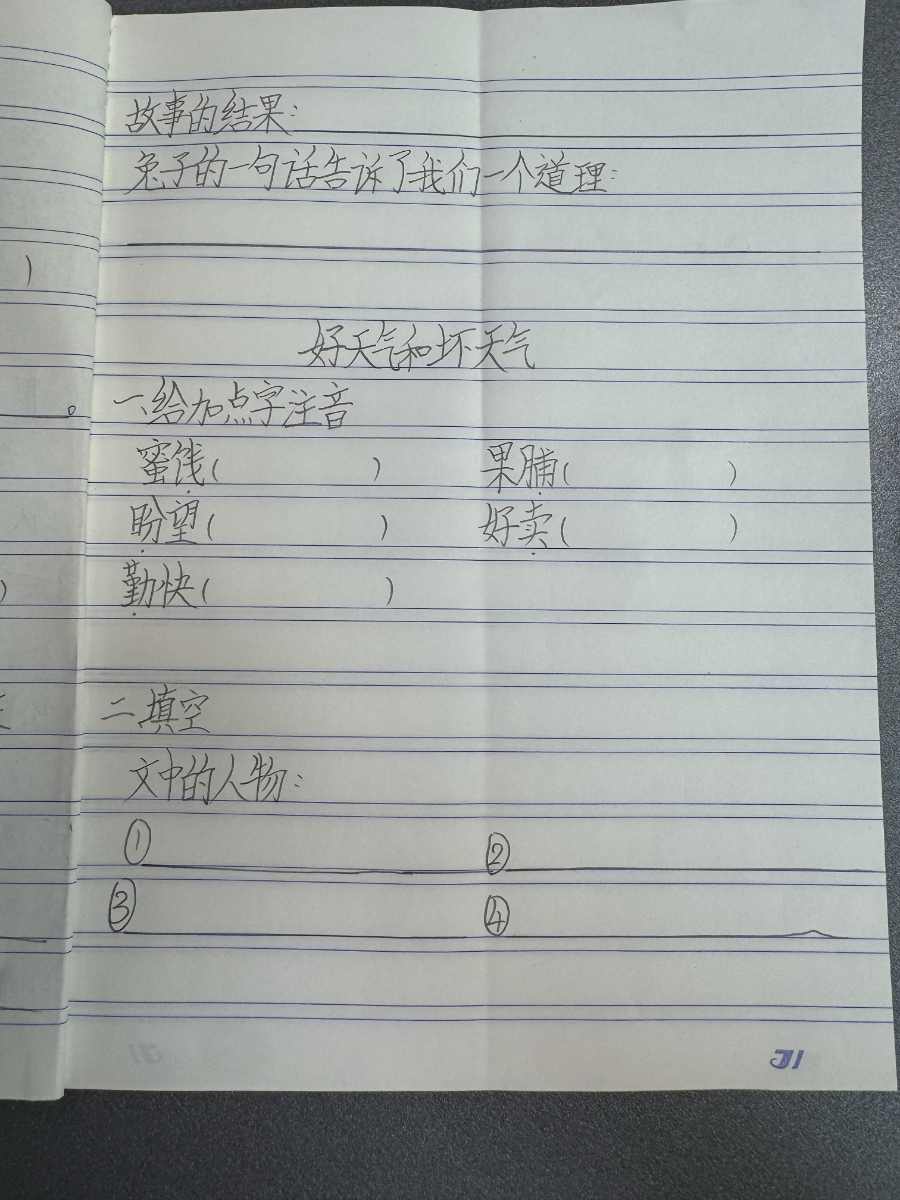 故事的结果:
兔子的一句话告诉了我们一个道理:
)
好天气和坏天气
一、给加点字注音
蜜饯( ) 果脯( )
盼望( ) 好卖( )
勤快( )
二、填空
文中的人物:
① ②
③ ④